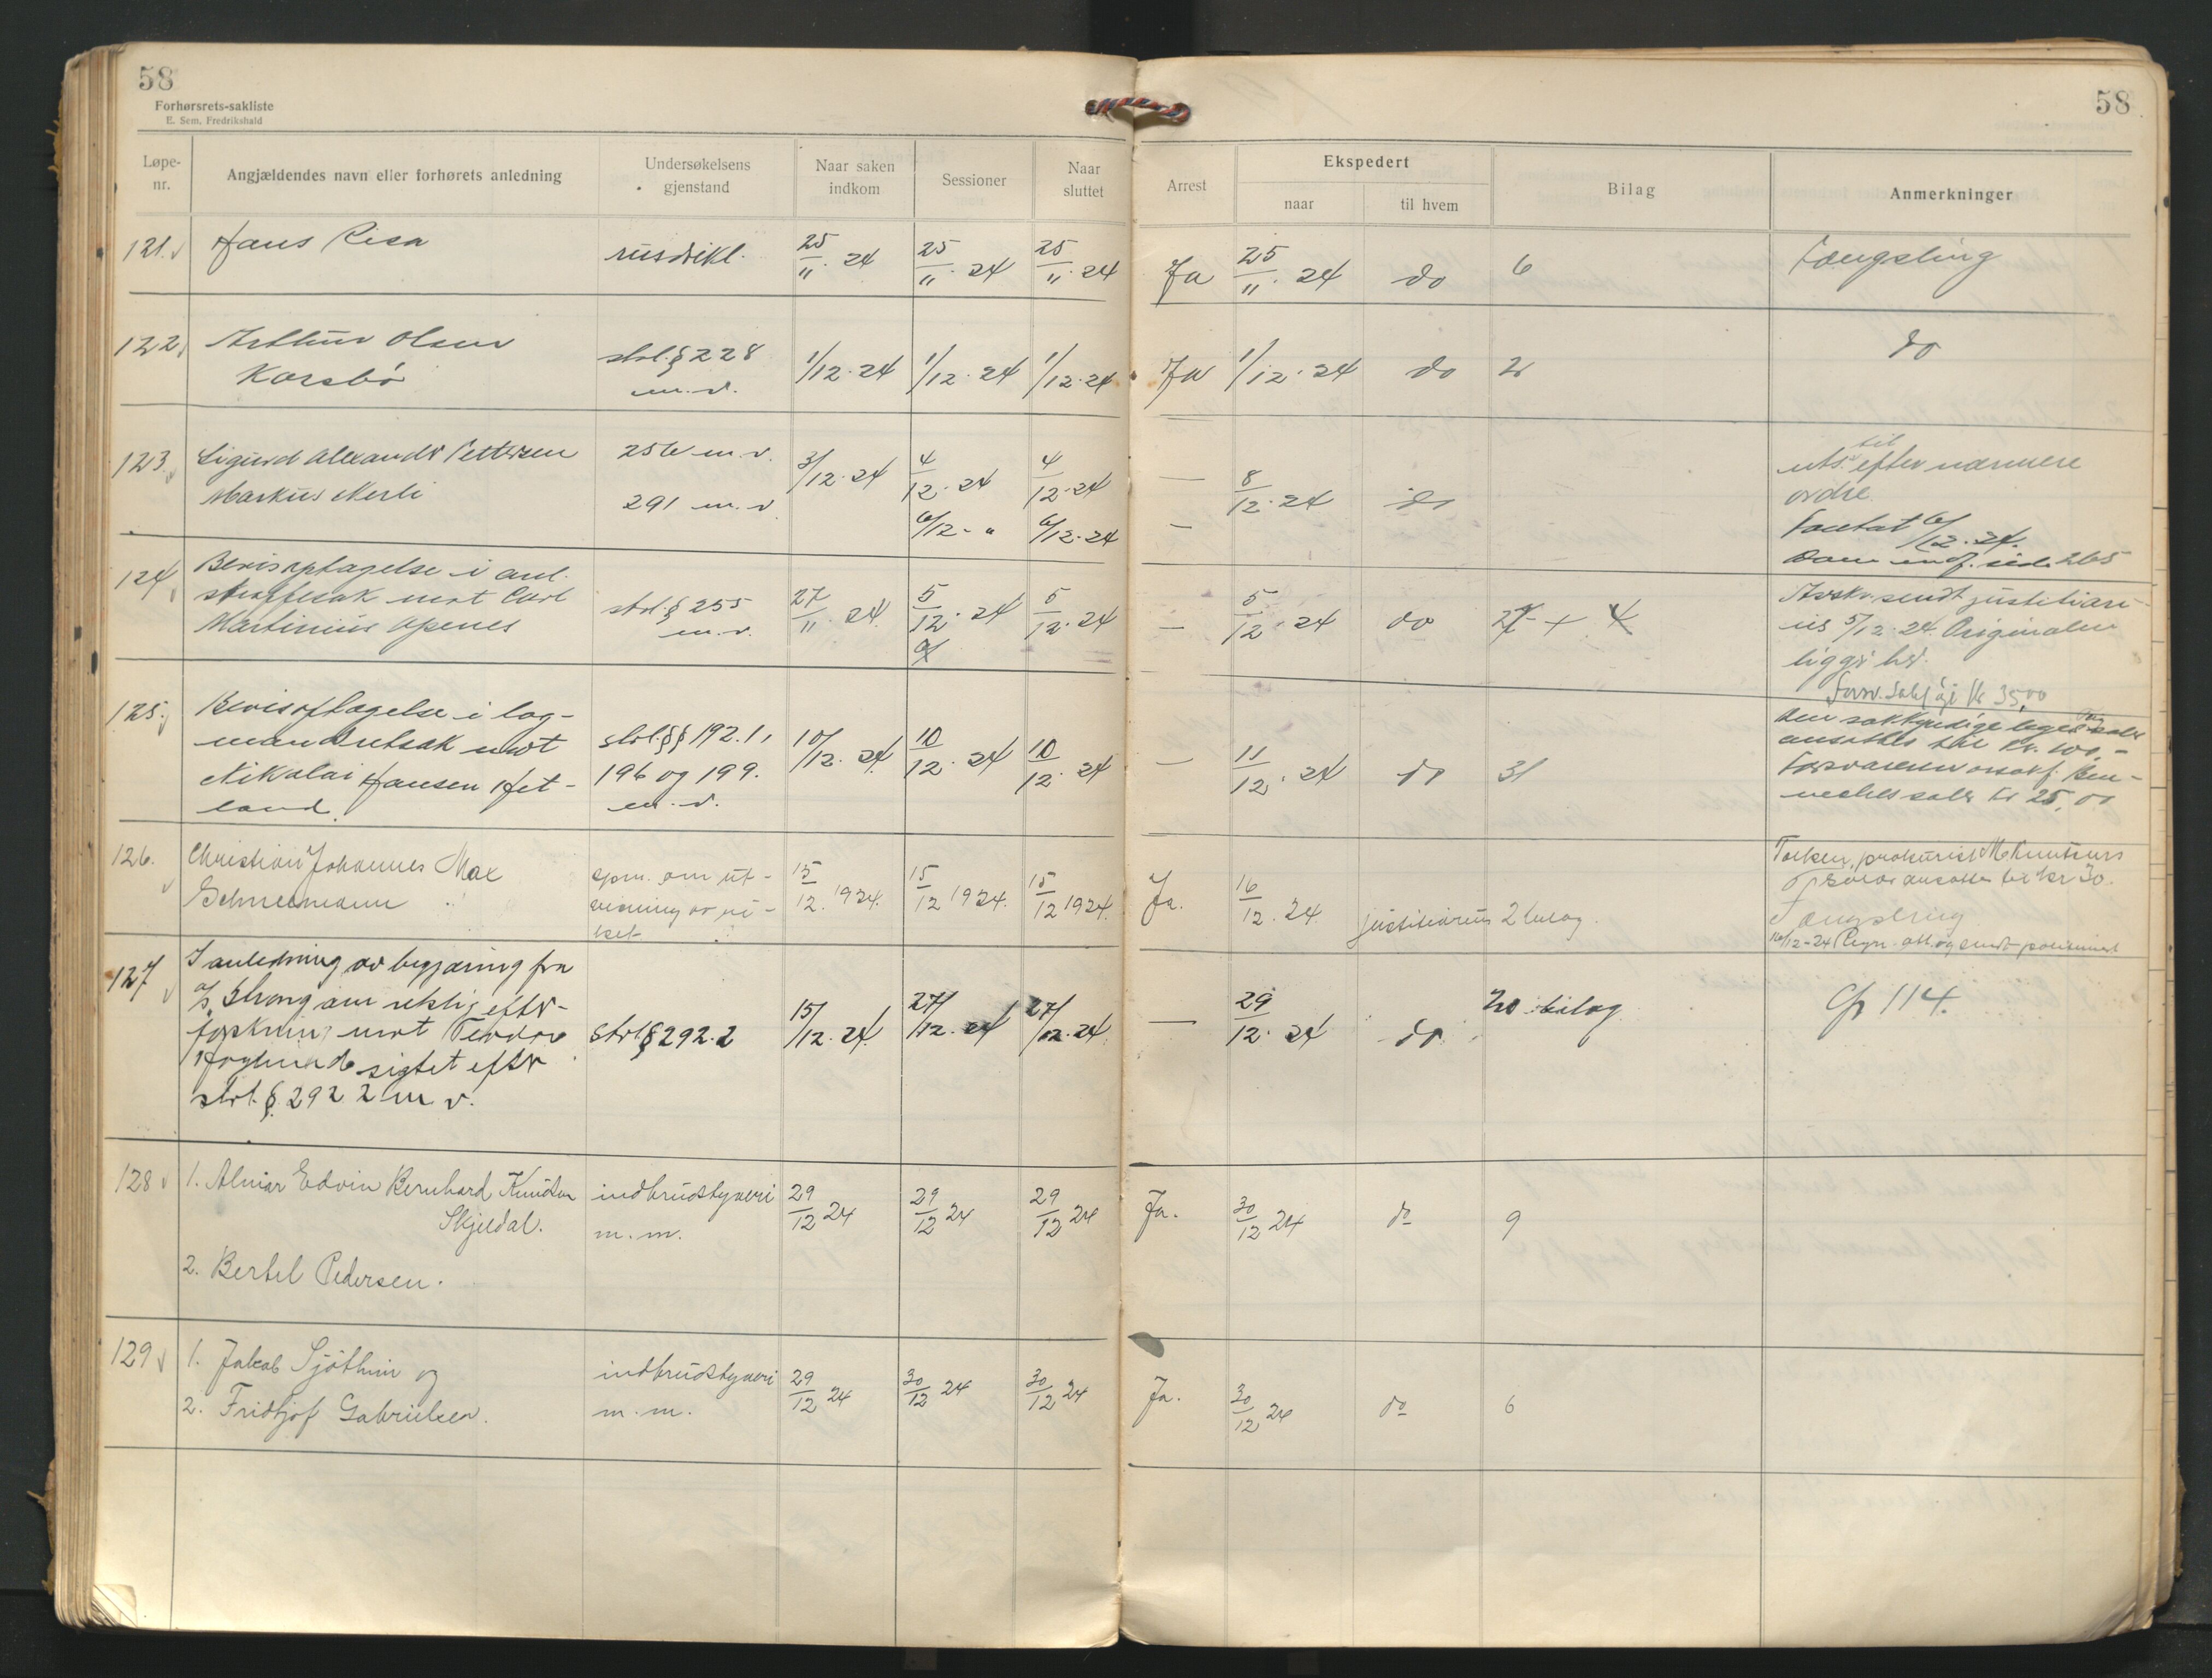 58
Forhørsrets-sakliste
E. Sem, Fredrikshald
58
Løpe-nr.
Angjældendes navn eller forhørets anledning
Undersøkelsens gjenstand
Naar saken indkom
Sessioner
Naar sluttet
Arrest
Ekspedert
naar
til hvem
Bilag
Anmerkninger
121. Hans Risa
rusdrikl.
25/11. 24
25/11. 24
25/11. 24
Ja
25/11. 24
do
6
Fængsling
122. Arthur Olsen
Karsbø
strl. § 228
m. v.
1/12. 24
1/12. 24
1/12. 24
Ja
1/12. 24
do
2
do
123. Sigurd Alexander Pettersen
Markus Nerli
256 m. v.
291 m. v.
3/12. 24
4/12. 24
6/12 - "
4/12. 24
6/12. 24
—
—
8/12. 24
do
til
uts. efter nærmere
ordre.
Foretat 6/12. 24.
Dom indf. side 265
124. Bevisoptagelse i anl.
straffesak mot Carl
Martinius Apenes
strl. § 255
m. v.
27/11. 24
5/12. 24
5/12. 24
—
5/12. 24
do
27 + 4
Avskr. sendt justitiari-
us 5/12. 24. Originalen
ligger her.
125. Bevisoptagelse i lag-
mandsretsak mot
Nikolai Hansen Het-
land.
strl. §§ 192. 1,
196 og 199.
m. v.
10/12. 24
10/12. 24
10/12. 24
—
11/12. 24
do
31
kr 35,00
Den sakkyndige læges salær
ansattes til kr. 100,-
Forsvareren orsakf. Ben-
neches salær kr 25,00
126. Christian Johannes Max
Schnelmann
spm. om ut-
visning av ri-
ket
15/12. 1924.
15/12 1924.
15/12 1924.
Ja.
16/12. 24
justitiarius
2 bilag.
Tolken, prokurist M. Knutsens
salær ansattes til kr 30.
Fængsling
16/12-24 Regn. att. og sendt politimest.
127 I anledning av begjæring fra
a/s Strong om retslig efter-
forskning mot Teodor
Hoglund sigtet efter
strl. § 292 2 m v.
strl § 292. 2
15/12. 24.
27/12. 24
27/12. 24
—
29/12. 24
do
20 bilag
Cfr 114.
128 1. Almar Edvin Bernhard Knudsen
Skjeldal.
2. Bertel Pedersen.
indbrudstyveri
m. m.
29/12 24
29/12 24
29/12 24
Ja.
30/12 24
do
9
129 1. Jakob Sjøthun og
2. Fridtjof Gabrielsen.
indbrudstyveri
m. m.
29/12 24
30/12 24
30/12 24
Ja.
30/12 24
do
6